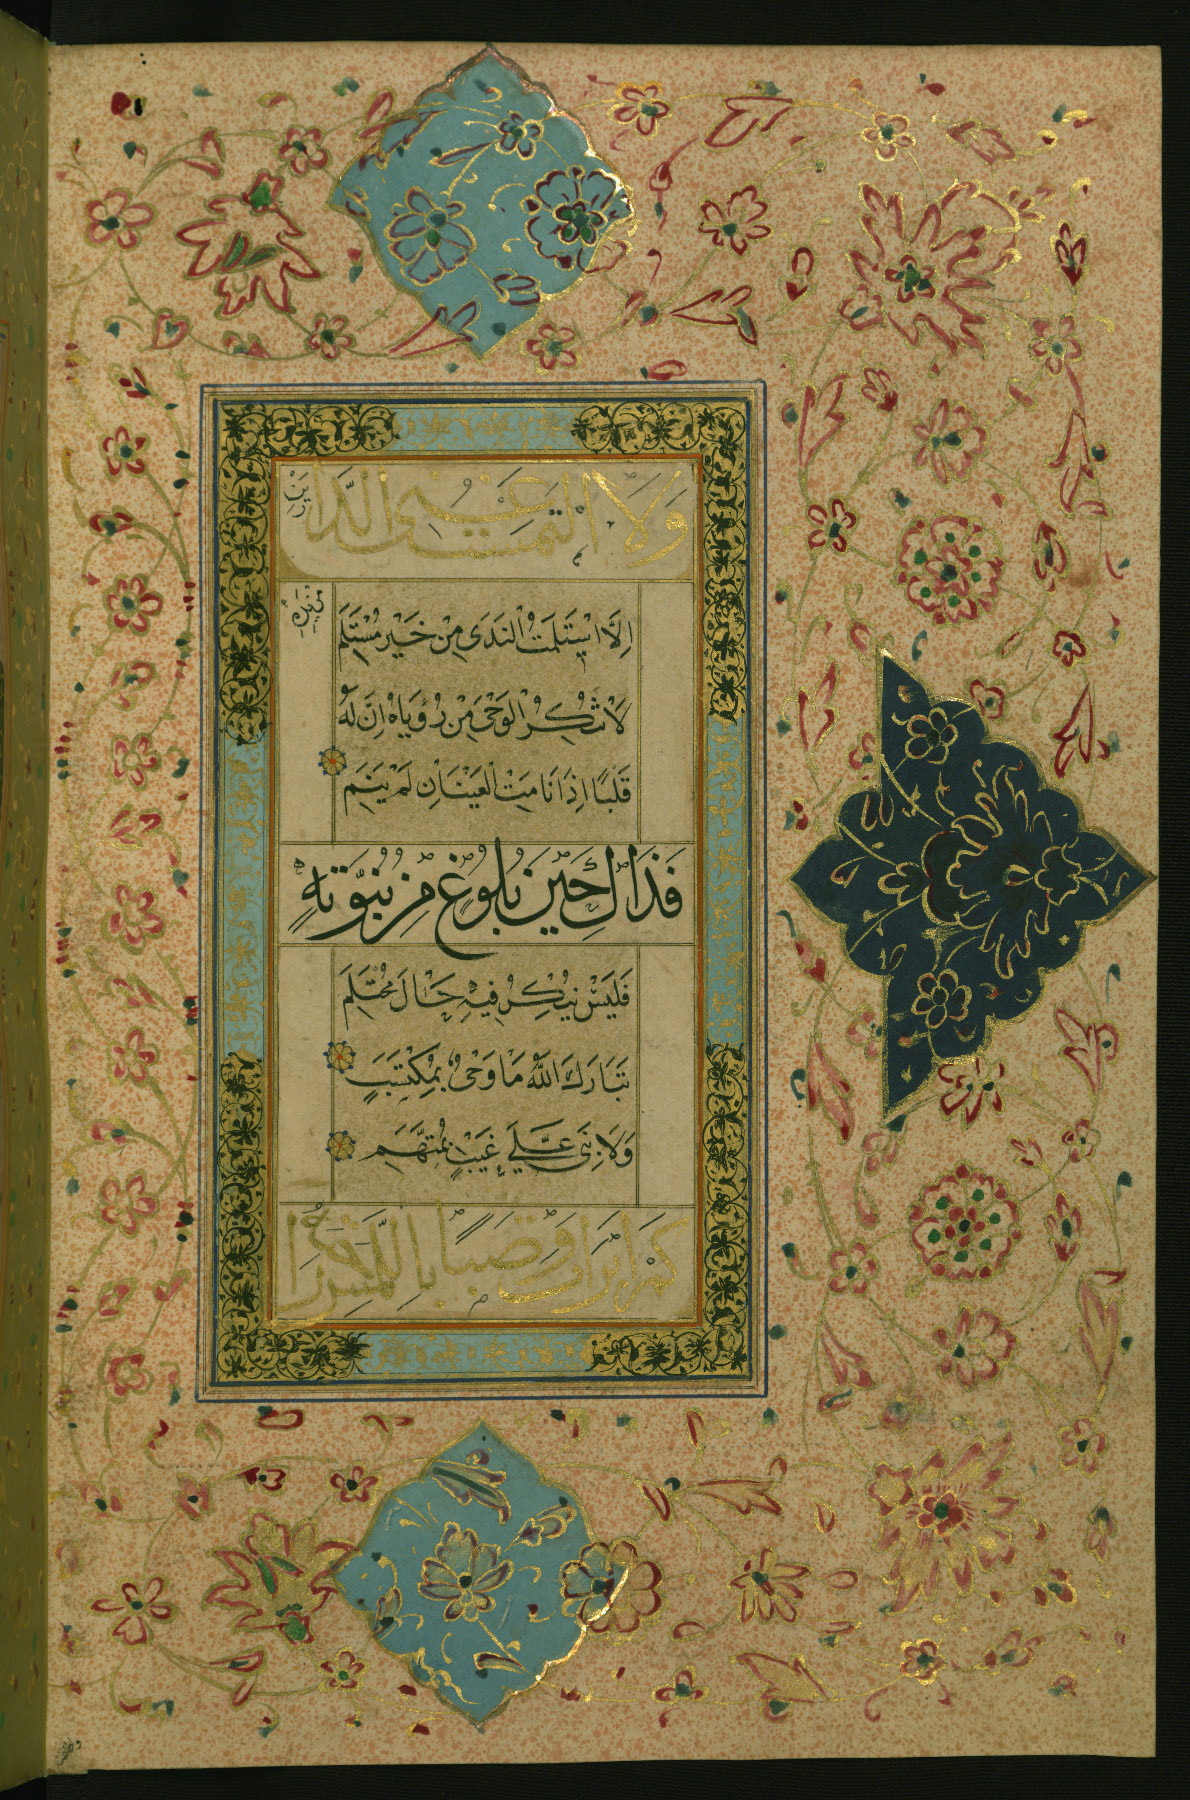 وَلَا الْتَمَسْتُ غِنَى الدَّارَيْنِ
مِنْ يَدِهِ
اِلَّا اسْتَلَمْتُ النَّدَى مِنْ خَيْرِ مُسْتَلَمِ
لَا تُنْكِرُ الْوَحْيَ مِنْ رُؤْيَاهُ اِنَّ لَهُ
قَلْبًا اِذَا نَامَتِ الْعَيْنَانِ لَمْ يَنَمِ
فَذَاكَ حِينَ بُلُوغٍ مِنْ نُبُوَّتِهِ
فَلَيْسَ يُنْكَرُ فِيهِ حَالَ مُحْتَلِمِ
تَبَارَكَ اللّٰهُ مَا وَحْيٌ بِمُكْتَسَبٍ
وَلَا نَبِيٌّ عَلَى غَيْبٍ بِمُتَّهَمِ
كَمْ اَبْرَأَتْ وَصِبًا بِاللَّمْسِ رَاحَتُهُ